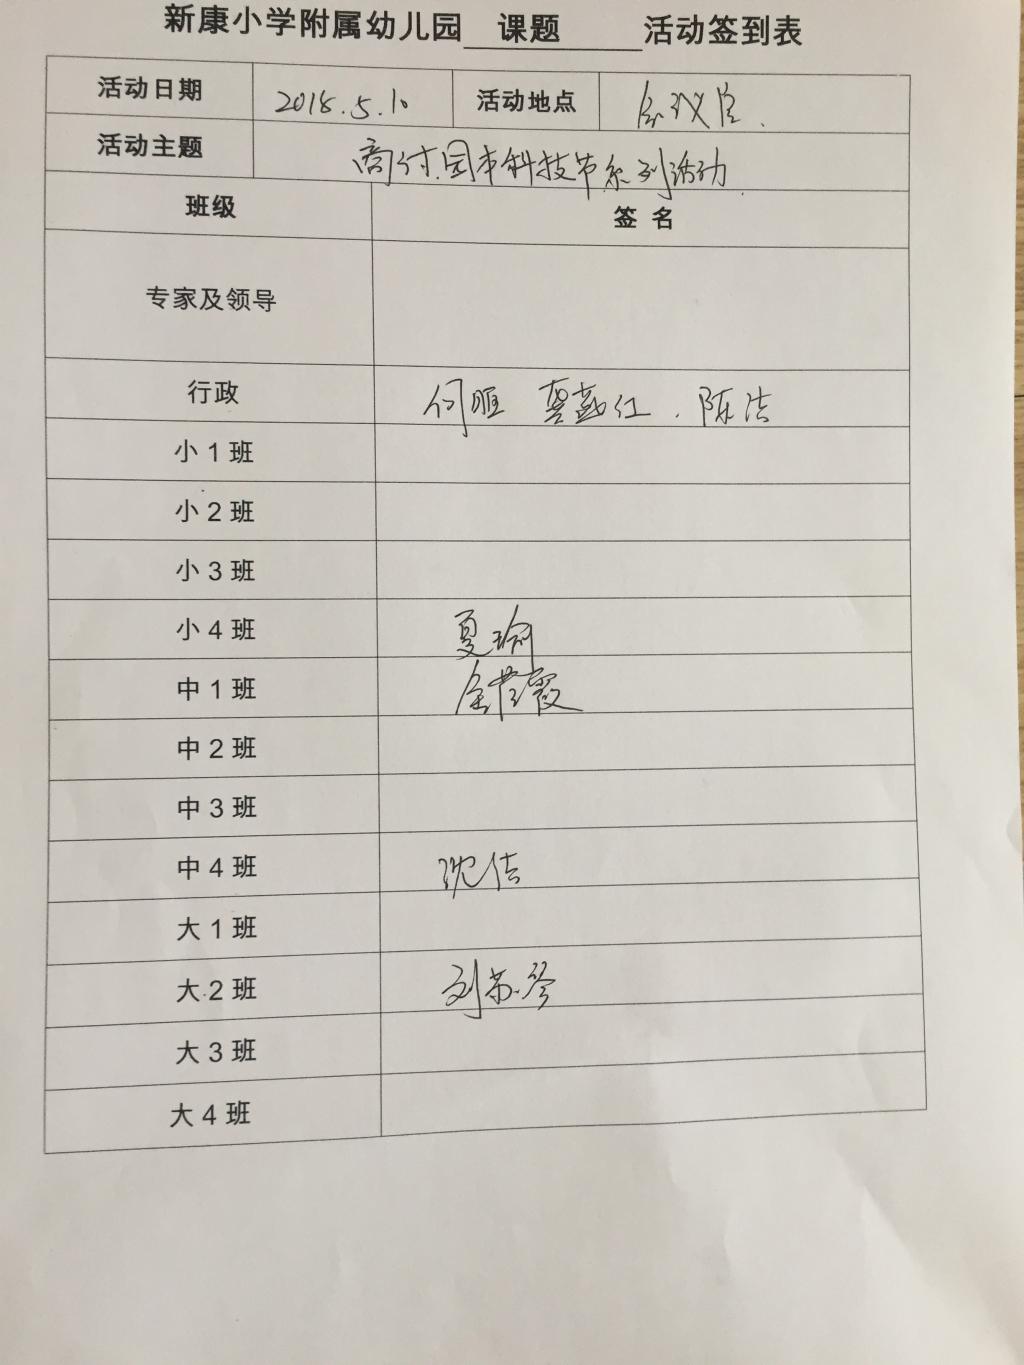 新康小学附属幼儿园 课题 活动签到表
活动日期 2018.5.10 活动地点 会议室.
活动主题 商讨园本科技节系列活动.
班级 签 名
专家及领导
行政 何 红. 陈洁
小 1 班
小 2 班
小 3 班
小 4 班 夏瑜
中 1 班 金 霞
中 2 班
中 3 班
中 4 班 沈佶
大 1 班
大 2 班 刘苏琴
大 3 班
大 4 班